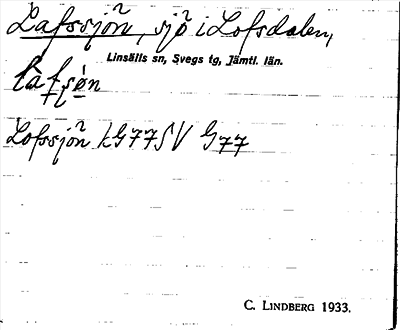 Lafssjön, sjö i Lofsdalen,
Linsälls sn, Svegs tg, Jämtl. län.
Lofssjön kG77SV G77
C. LINDBERG 1933.